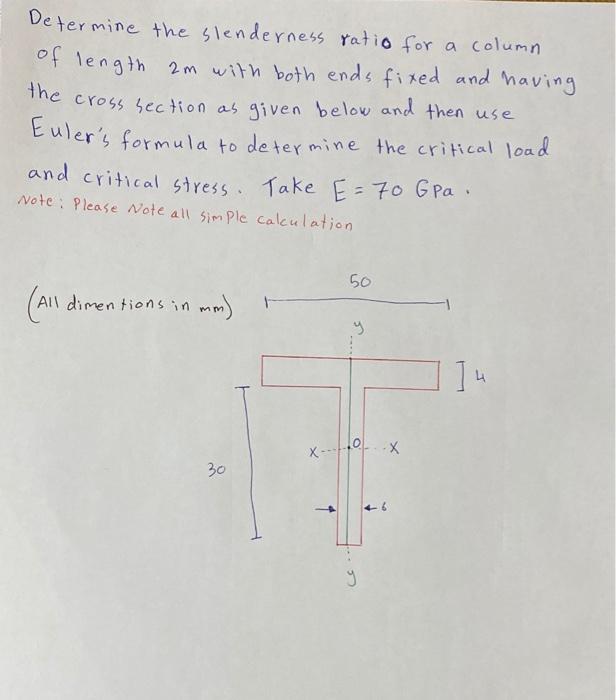 Determine the slenderness ratio for a column
of length 2m with both ends fixed and having
the cross section as given below and then use
Euler's formula to determine the critical load
and critical stress. Take E = 70 GPa.
Note: Please Note all simple calculation
50
(All dimentions in mm)
y
4
X O X
30
6
y